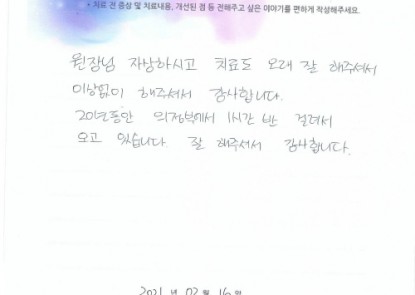 • 치료 전 증상 및 치료내용, 개선된 점 등 전해주고 싶은 이야기를 편하게 작성해주세요.
원장님 자상하시고 치료도 오래 잘 해주셔서
이상없이 해주셔서 감사합니다.
20년동안 의정부에서 1시간 반 걸려서
오고 있습니다. 잘 해주셔서 감사합니다.
2021 년 02 월 16 일